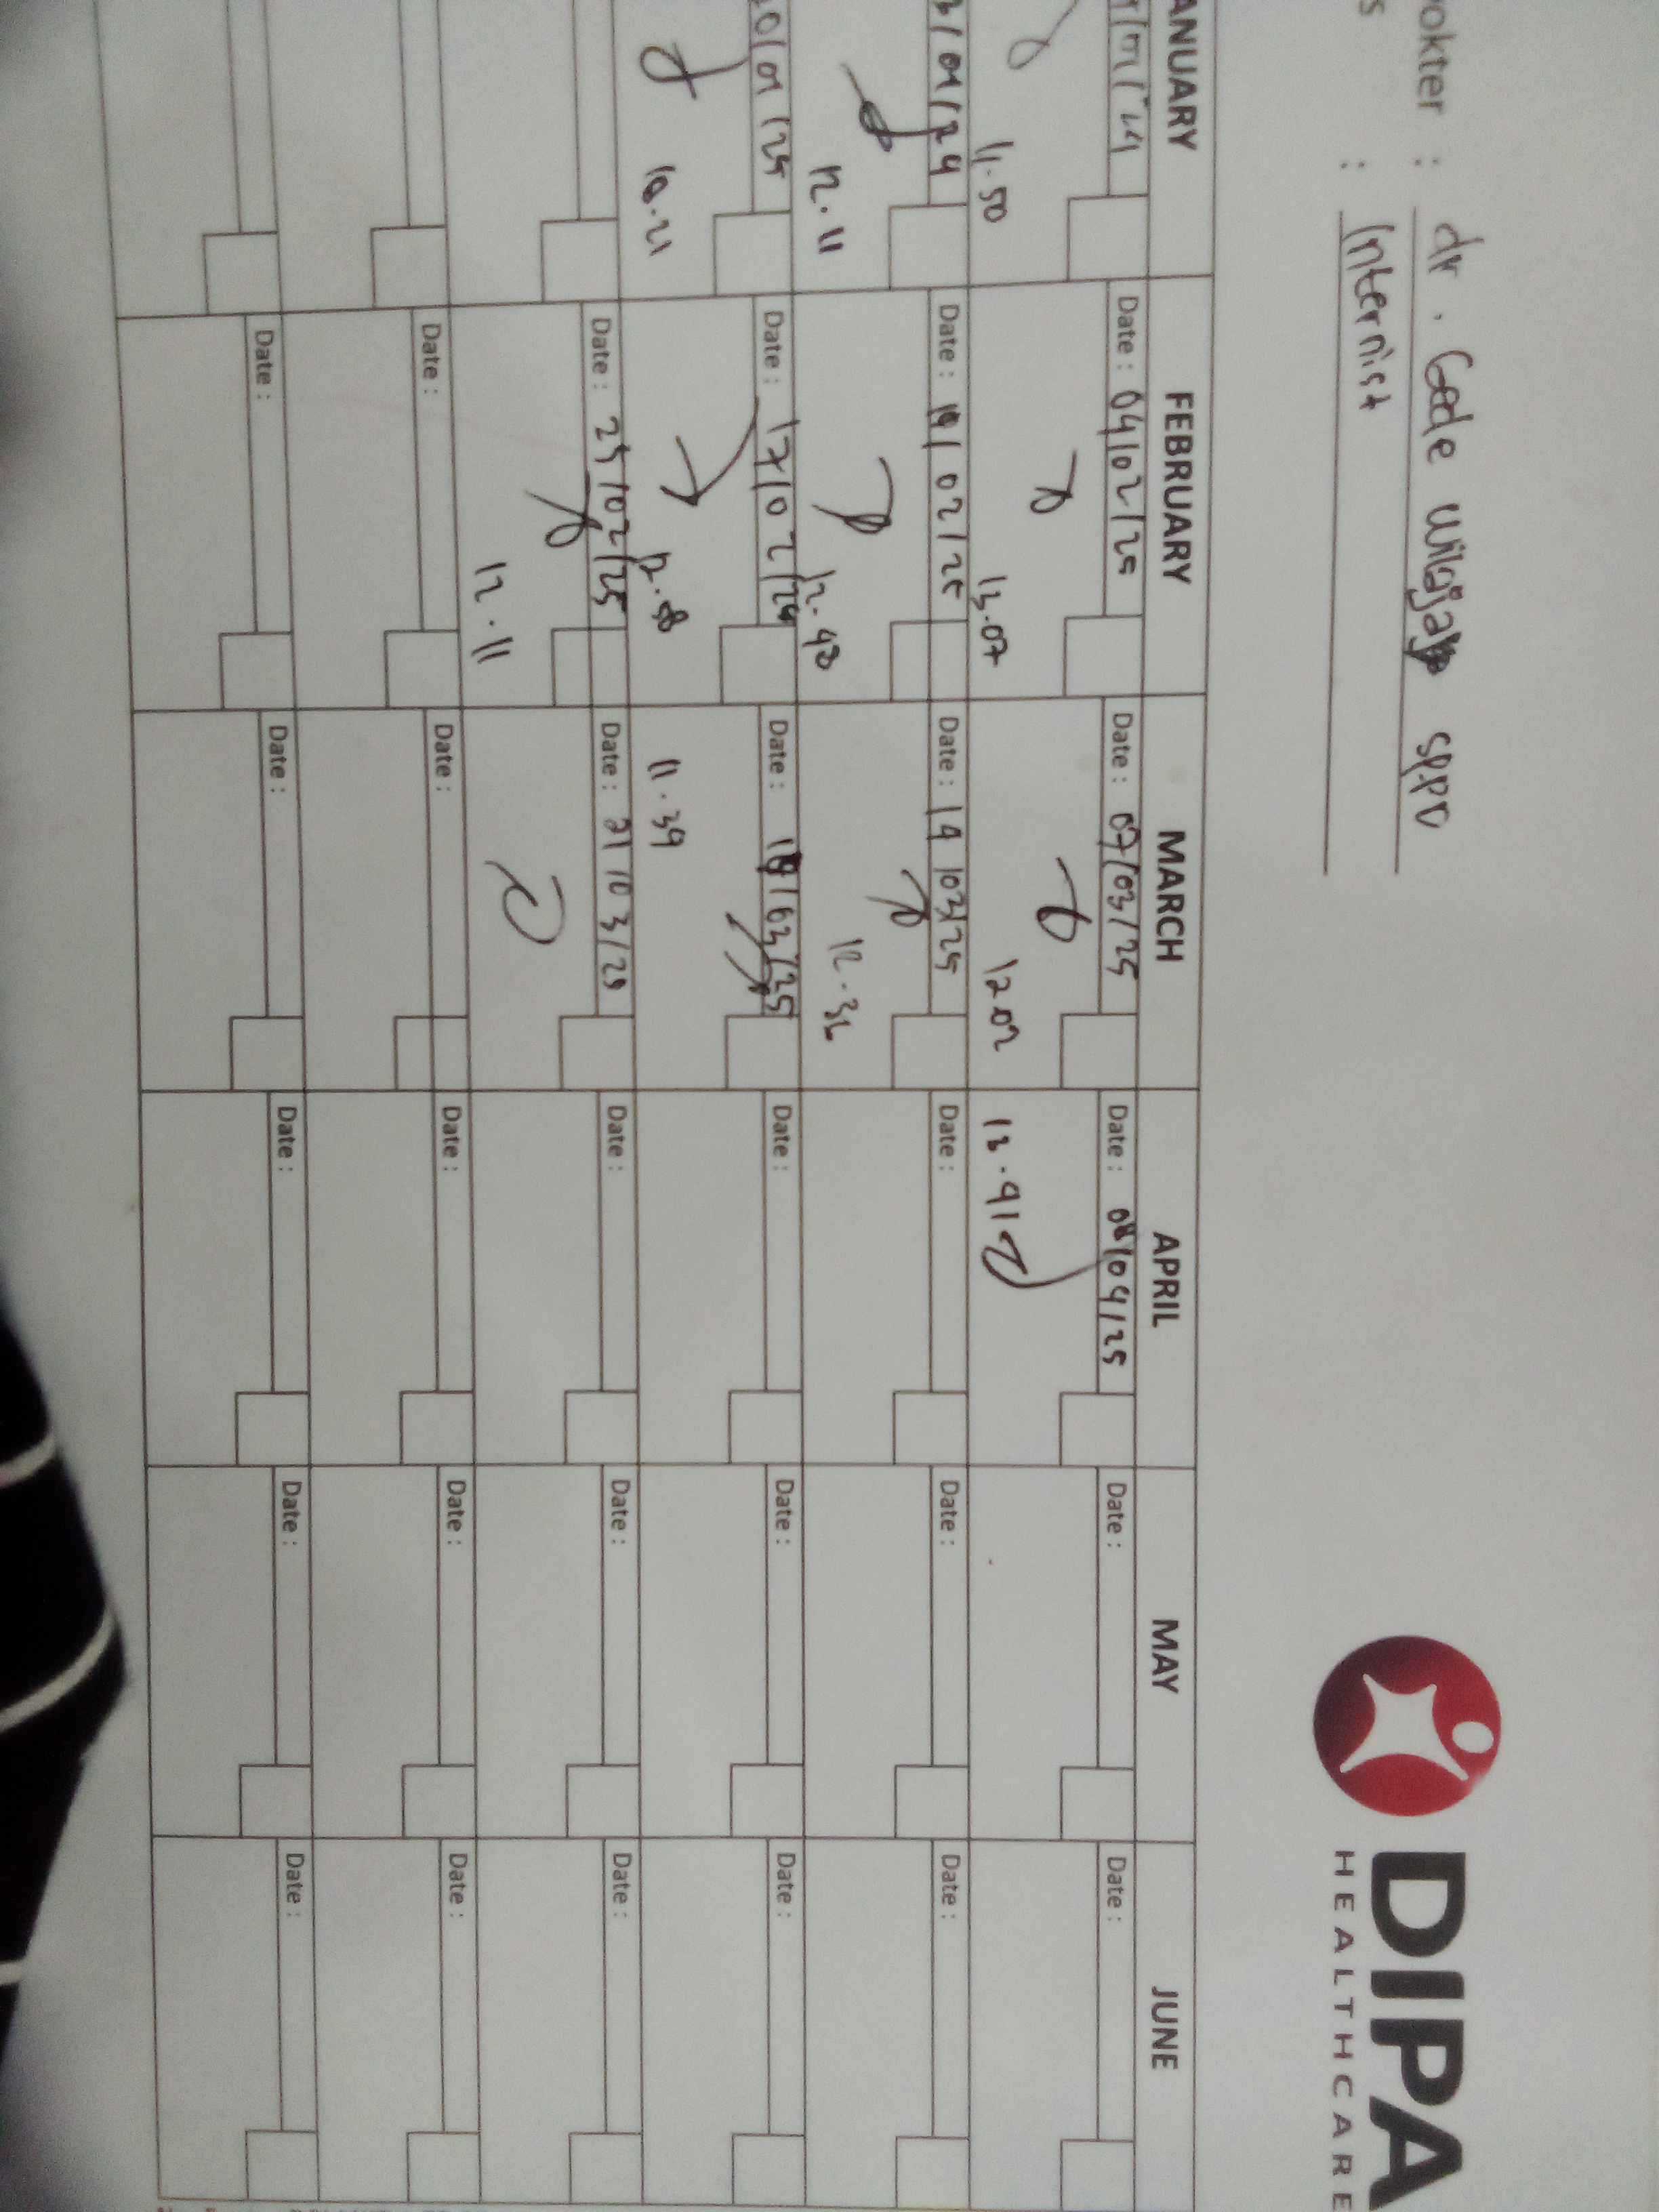 DIPA
HEALTHCARE
okter : dr. Gede wibjaya SpPD
s : Internist
ANUARY FEBRUARY MARCH APRIL MAY JUNE
Date : 04/02/25 Date : 07/03/25 Date : 08/04/25 Date : Date :
11.50 13.07 12.02 13.41
3/01/24 Date : 10/02/25 Date : 14/03/25 Date : Date : Date :
12.11 12.48 12.32
20/01/25 Date : 17/02/25 Date : 18/03/25 Date : Date : Date :
10.21 11.39
Date : 25/02/25 Date : 21/03/25 Date : Date : Date :
12.11
Date : Date : Date : Date : Date :
Date : Date : Date : Date : Date :